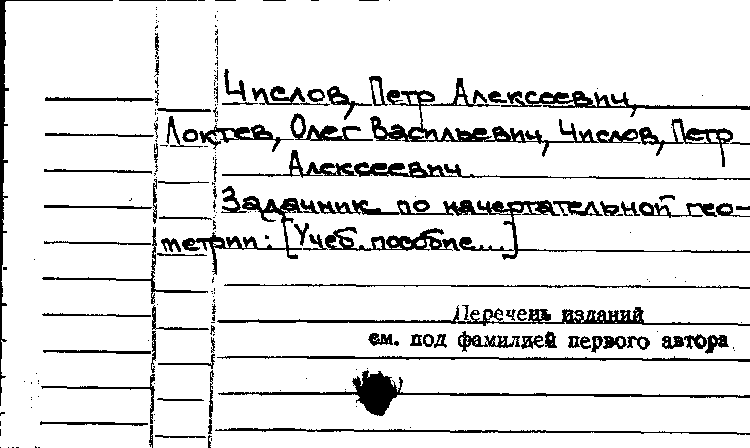 Числов, Петр Алексеевич,
Локтев, Олег Васильевич, Числов, Петр
Алексеевич.
Задачник по начертательной гео-
метрии: [Учеб. пособие...]
Перечень изданий
см. под фамилией первого автора